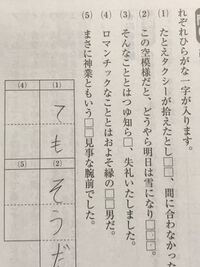 れぞれひらがな一字が入ります。
(1) たとえタクシーが拾えたとし□□、間に合わなかった
(2) この空模様だと、どうやら明日は雪になり□□□。
(3) そんなこととはつゆ知ら□、失礼いたしました。
(4) ロマンチックなこととはおよそ縁の□□男だ。
(5) まさに神業ともいう□□見事な腕前でした。
(1) ても
(2) そうだ
(4)
(5)